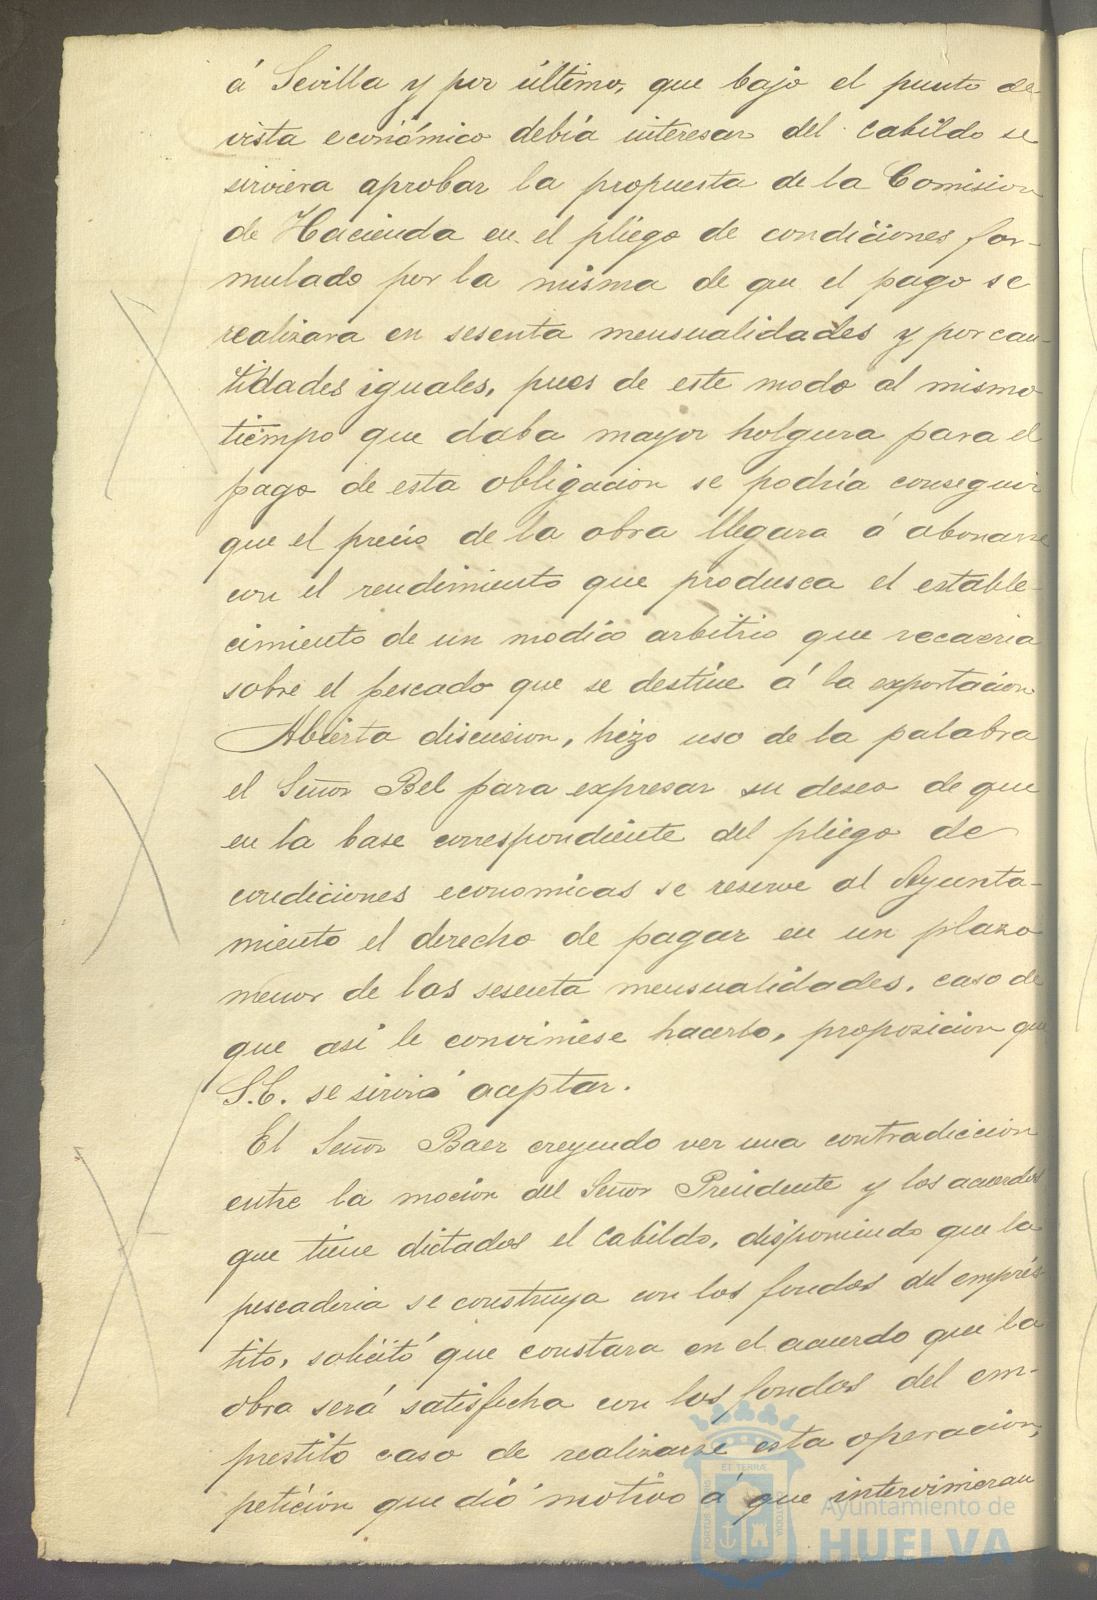 á Sevilla y por último, que bajo el punto de
vista económico debía interesar del cabildo se
sirviera aprobar la propuesta de la Comision
de Hacienda en el pliego de condiciones for-
mulado por la misma de que el pago se
realizara en sesenta mensualidades y por can-
tidades iguales, pues de este modo al mismo
tiempo que daba mayor holgura para el
pago de esta obligacion se podría conseguir
que el precio de la obra llegara á abonarse
con el rendimiento que produsca el estable-
cimiento de un modico arbitrio que recaeria
sobre el pescado que se destine á la exportacion
Abierta discusion, hizo uso de la palabra
el Señor Bel para expresar su deseo de que
en la base correspondiente del pliego de
condiciones economicas se reserve al Ayunta-
miento el derecho de pagar en un plazo
menor de las sesenta mensualidades, caso de
que asi le conviniese hacerlo, proposicion que
S.E. se sirvió aceptar.
El Señor Baer creyendo ver una contradiccion
entre la mocion del Señor Presidente y los acuerdos
que tiene dictados el Cabildo, disponiendo que la
pescaderia se construya con los fondos del emprés-
tito, solicitó que constara en el acuerdo que la
obra será satisfecha con los fondos del em-
prestito caso de realizarse esta operacion,
petición que dió motivo á que intervinieran
PORTUS MARIS
ET TERRÆ
CUSTODIA
Ayuntamiento de
HUELVA